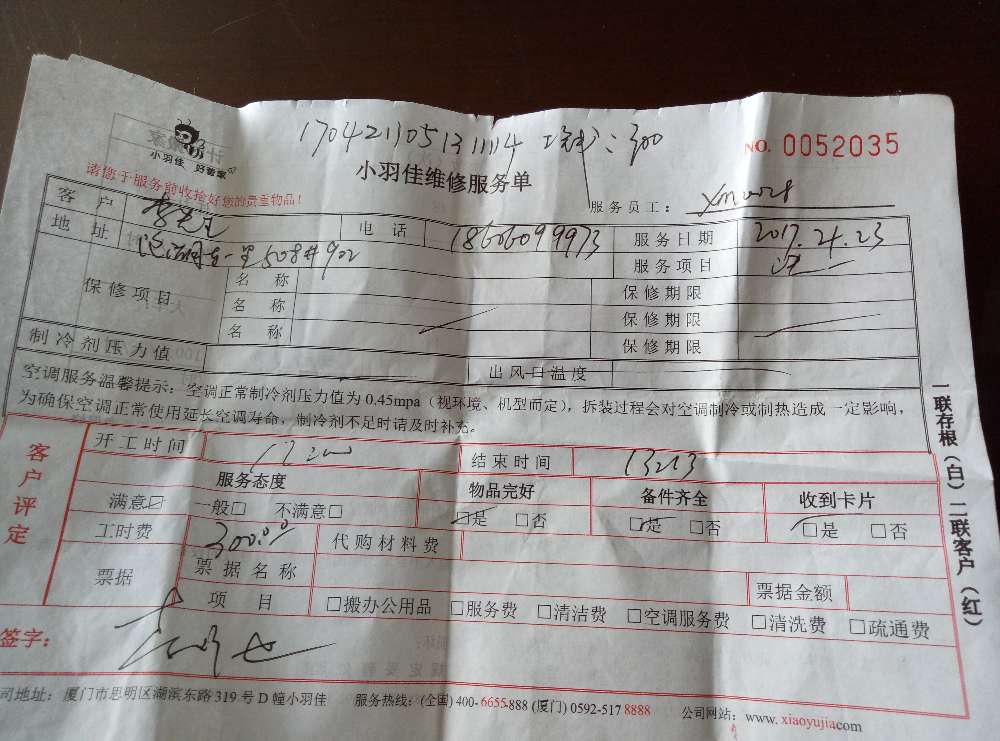 170421305131114 工时费:300
NO. 0052035
小羽佳 好管家
小羽佳维修服务单
请您于服务前收捡好您的贵重物品!
服务员工:
客户 李先生 电话 18606099973 服务日期 2017.4.23
地址 服务项目
保修项目 名称 保修期限
名称 保修期限
名称 保修期限
制冷剂压力值 出风口温度
空调服务温馨提示:空调正常制冷剂压力值为0.45mpa(视环境、机型而定),拆装过程会对空调制冷或制热造成一定影响,
为确保空调正常使用延长空调寿命,制冷剂不足时请及时补充。
一联存根(白)二联客户(红)
客户评定
开工时间 结束时间
服务态度 物品完好 备件齐全 收到卡片
满意☑ 一般□ 不满意□ ☑是 □否 ☑是 □否 ☑是 □否
工时费 300.00 代购材料费
票据 票据名称 票据金额
项目 □搬办公用品 □服务费 □清洁费 □空调服务费 □清洗费 □疏通费
签字:
司地址:厦门市思明区湖滨东路319号D幢小羽佳 服务热线:(全国)400-6655-888(厦门)0592-5178888 公司网站:www.xiaoyujia.com